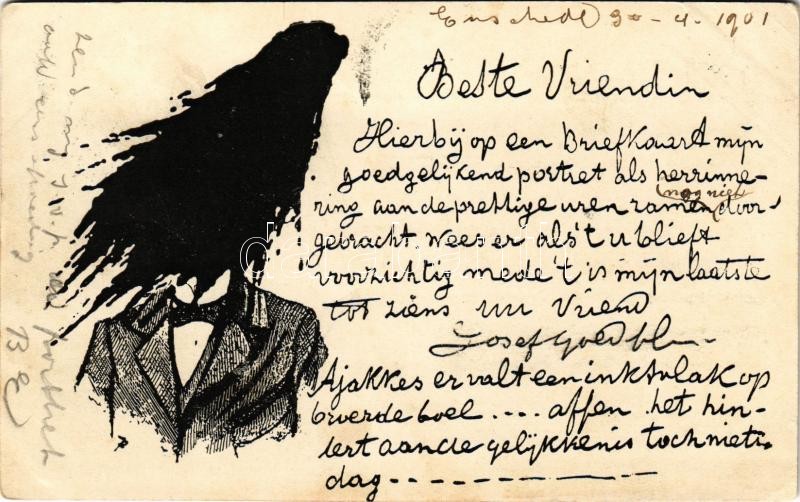 Enschede 30-4-1901
Beste Vriendin
Hierbij op een Briefkaart mijn
goedgelijkend portret als herrinne-
nog niet
ring aan de prettige uren zamen door-
gebracht wees er als 't u blieft
voorzichtig mede 't is mijn laatste
tot ziens uw Vriend
Josef
Ajakkes er valt een inktvlak op
broerde boel .... affen het hin-
dert aan de gelijkkenis toch niet.
dag
zend mij s.v.p. uw portret
BE